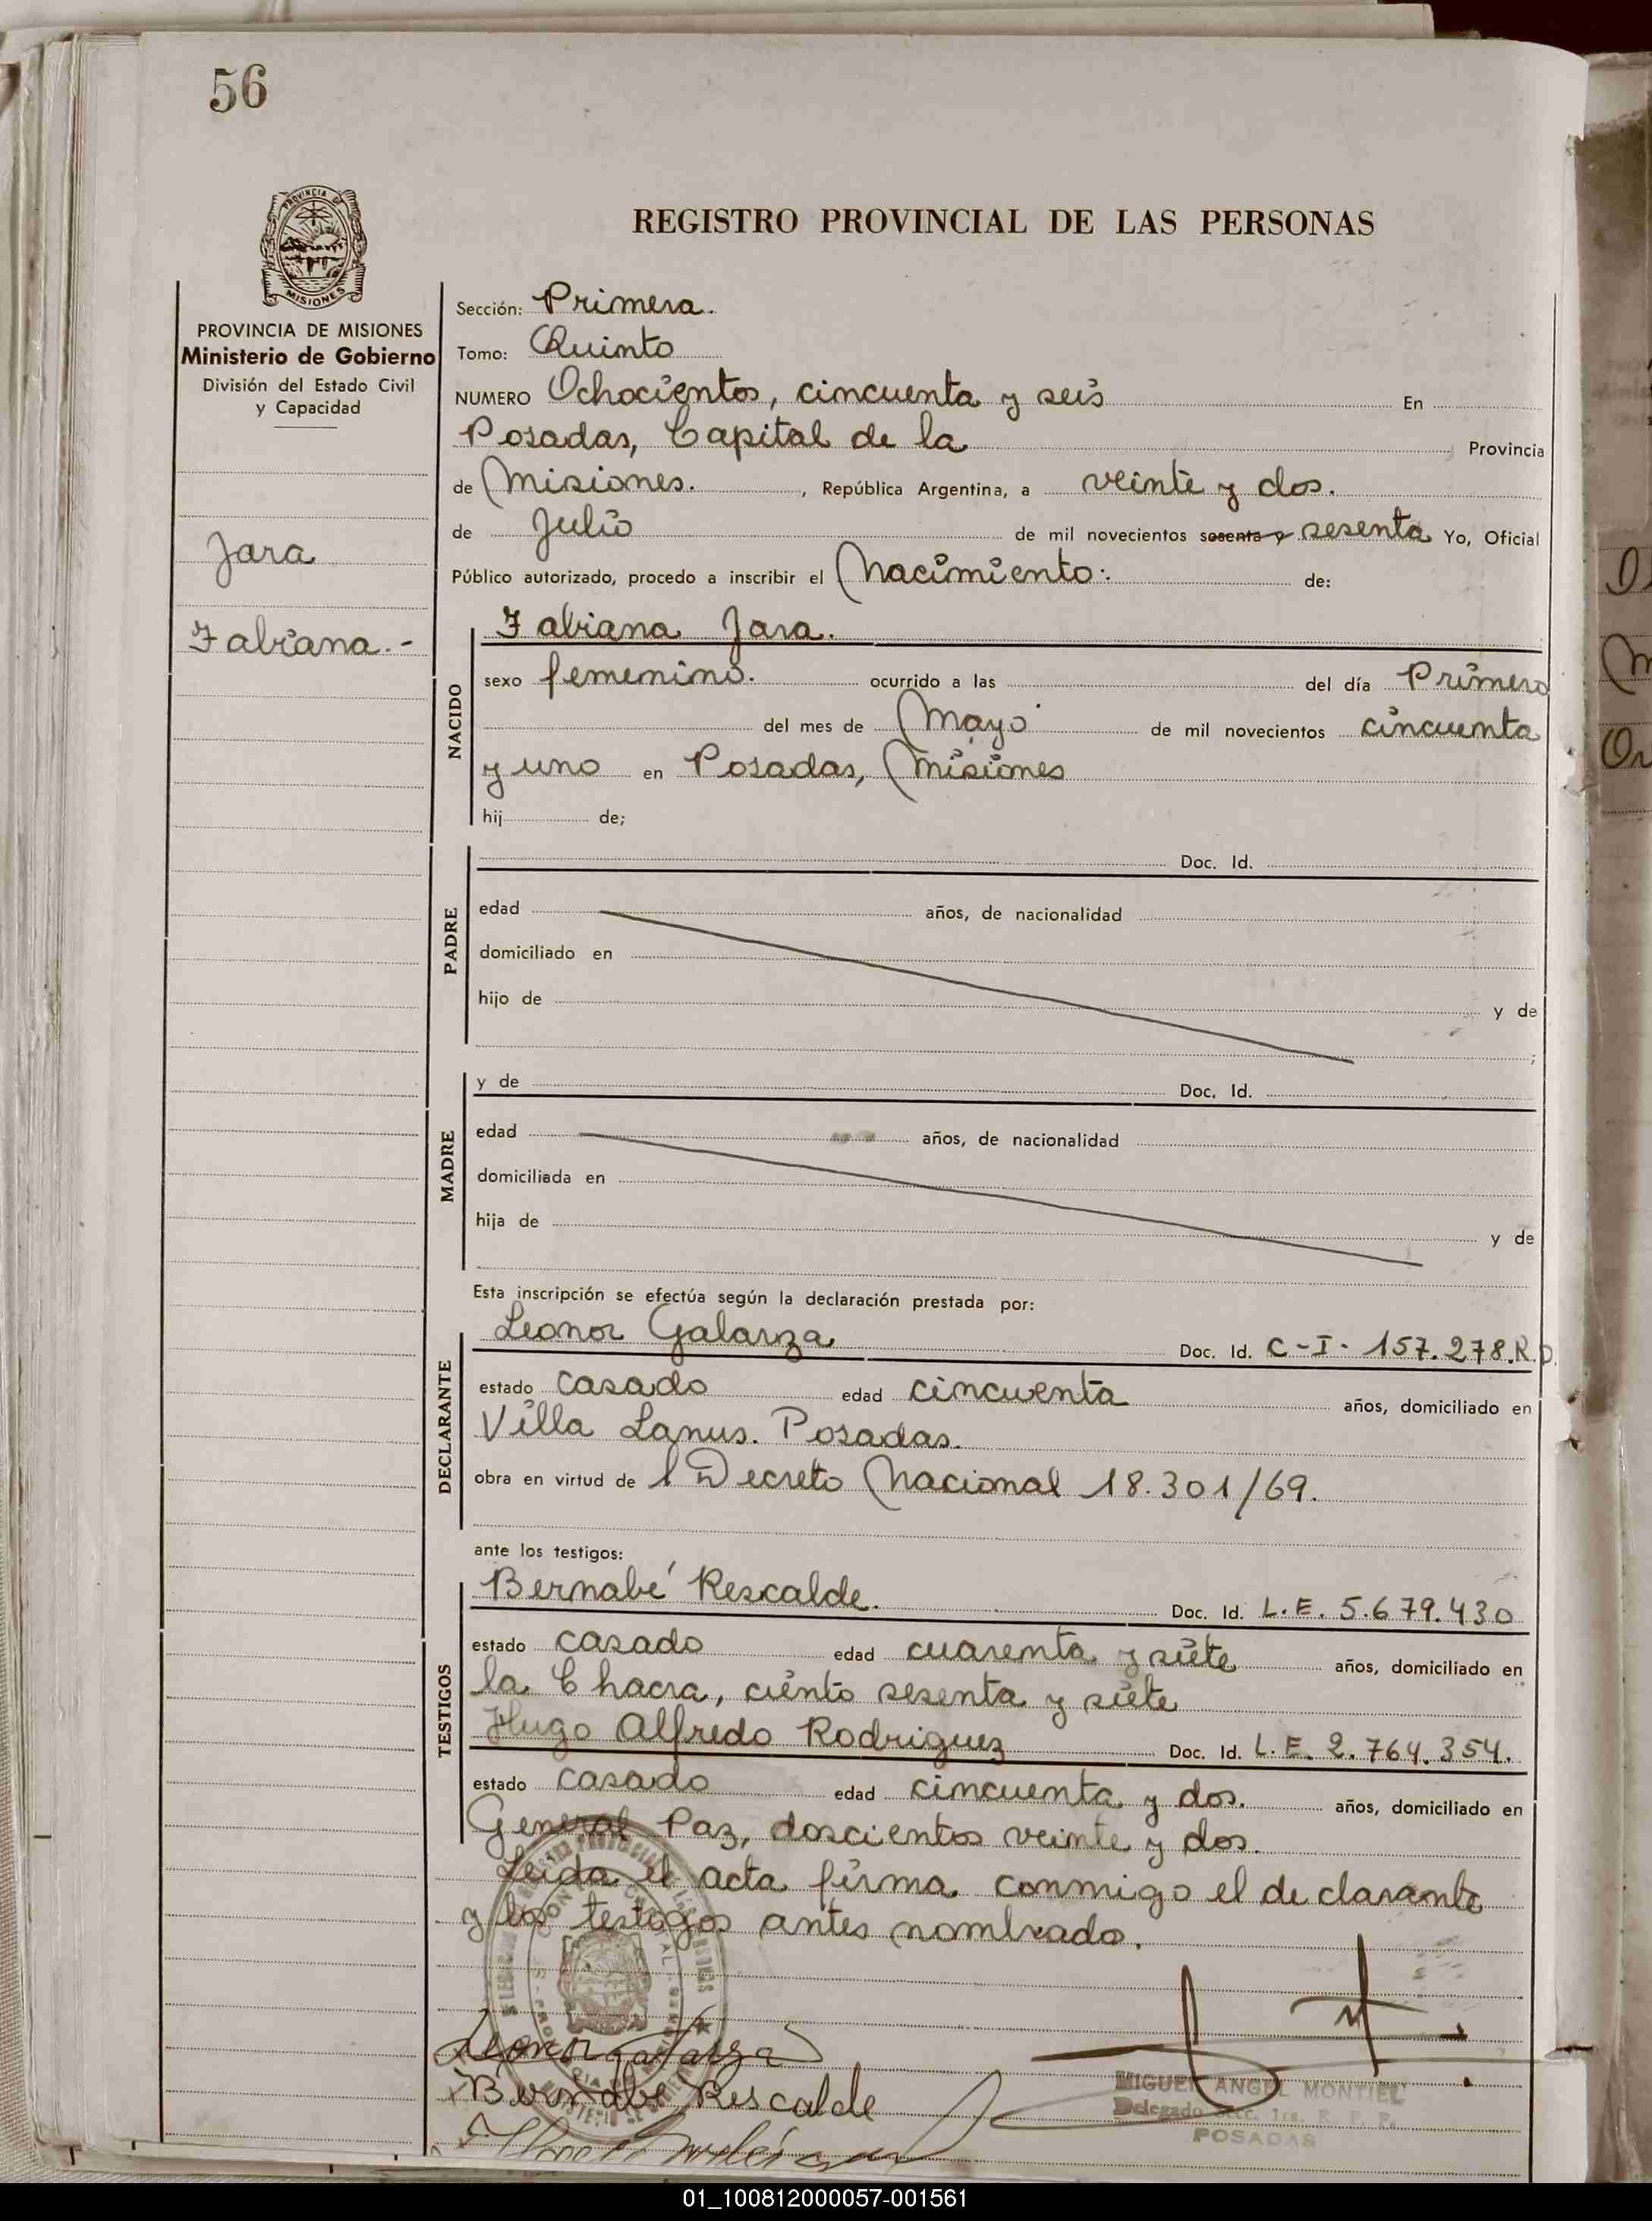 56
REGISTRO PROVINCIAL DE LAS PERSONAS
PROVINCIA DE MISIONES
Ministerio de Gobierno
División del Estado Civil
y Capacidad
Jara
Fabiana.-
Sección: Primera.
Tomo: Quinto
NUMERO Ochocientos, cincuenta y seis En
Posadas, Capital de la Provincia
de Misiones. , República Argentina, a veinte y dos.
de Julio de mil novecientos sesenta y sesenta Yo, Oficial
Público autorizado, procedo a inscribir el Nacimiento: de:
NACIDO
Fabiana Jara.
sexo femenino. ocurrido a las del día Primero
del mes de Mayo de mil novecientos cincuenta
y uno en Posadas, Misiones
hij de;
PADRE
Doc. Id.
edad años, de nacionalidad
domiciliado en
hijo de y de
;
MADRE
y de Doc. Id.
edad años, de nacionalidad
domiciliada en
hija de y de
Esta inscripción se efectúa según la declaración prestada por:
DECLARANTE
Leonor Galarza Doc. Id. C-I- 157.278.R.P.
estado casado edad cincuenta años, domiciliado en
Villa Lanus. Posadas.
obra en virtud de l Decreto Nacional 18.301/69.
ante los testigos:
TESTIGOS
Bernabé Rescalde. Doc. Id. L.E. 5.679.430
estado casado edad cuarenta y siete años, domiciliado en
la Chacra, ciento sesenta y siete
Hugo Alfredo Rodriguez Doc. Id. L.E. 2.764.354.
estado casado edad cincuenta y dos. años, domiciliado en
General Paz, doscientos veinte y dos.
Leida el acta firma conmigo el declarante
y los testigos antes nombrado.
Leonor Galarza
Bernabe Rescalde
MIGUEL ANGEL MONTIEL
Delegado Secc. 1ra. R. P. P.
POSADAS
01_100812000057-001561